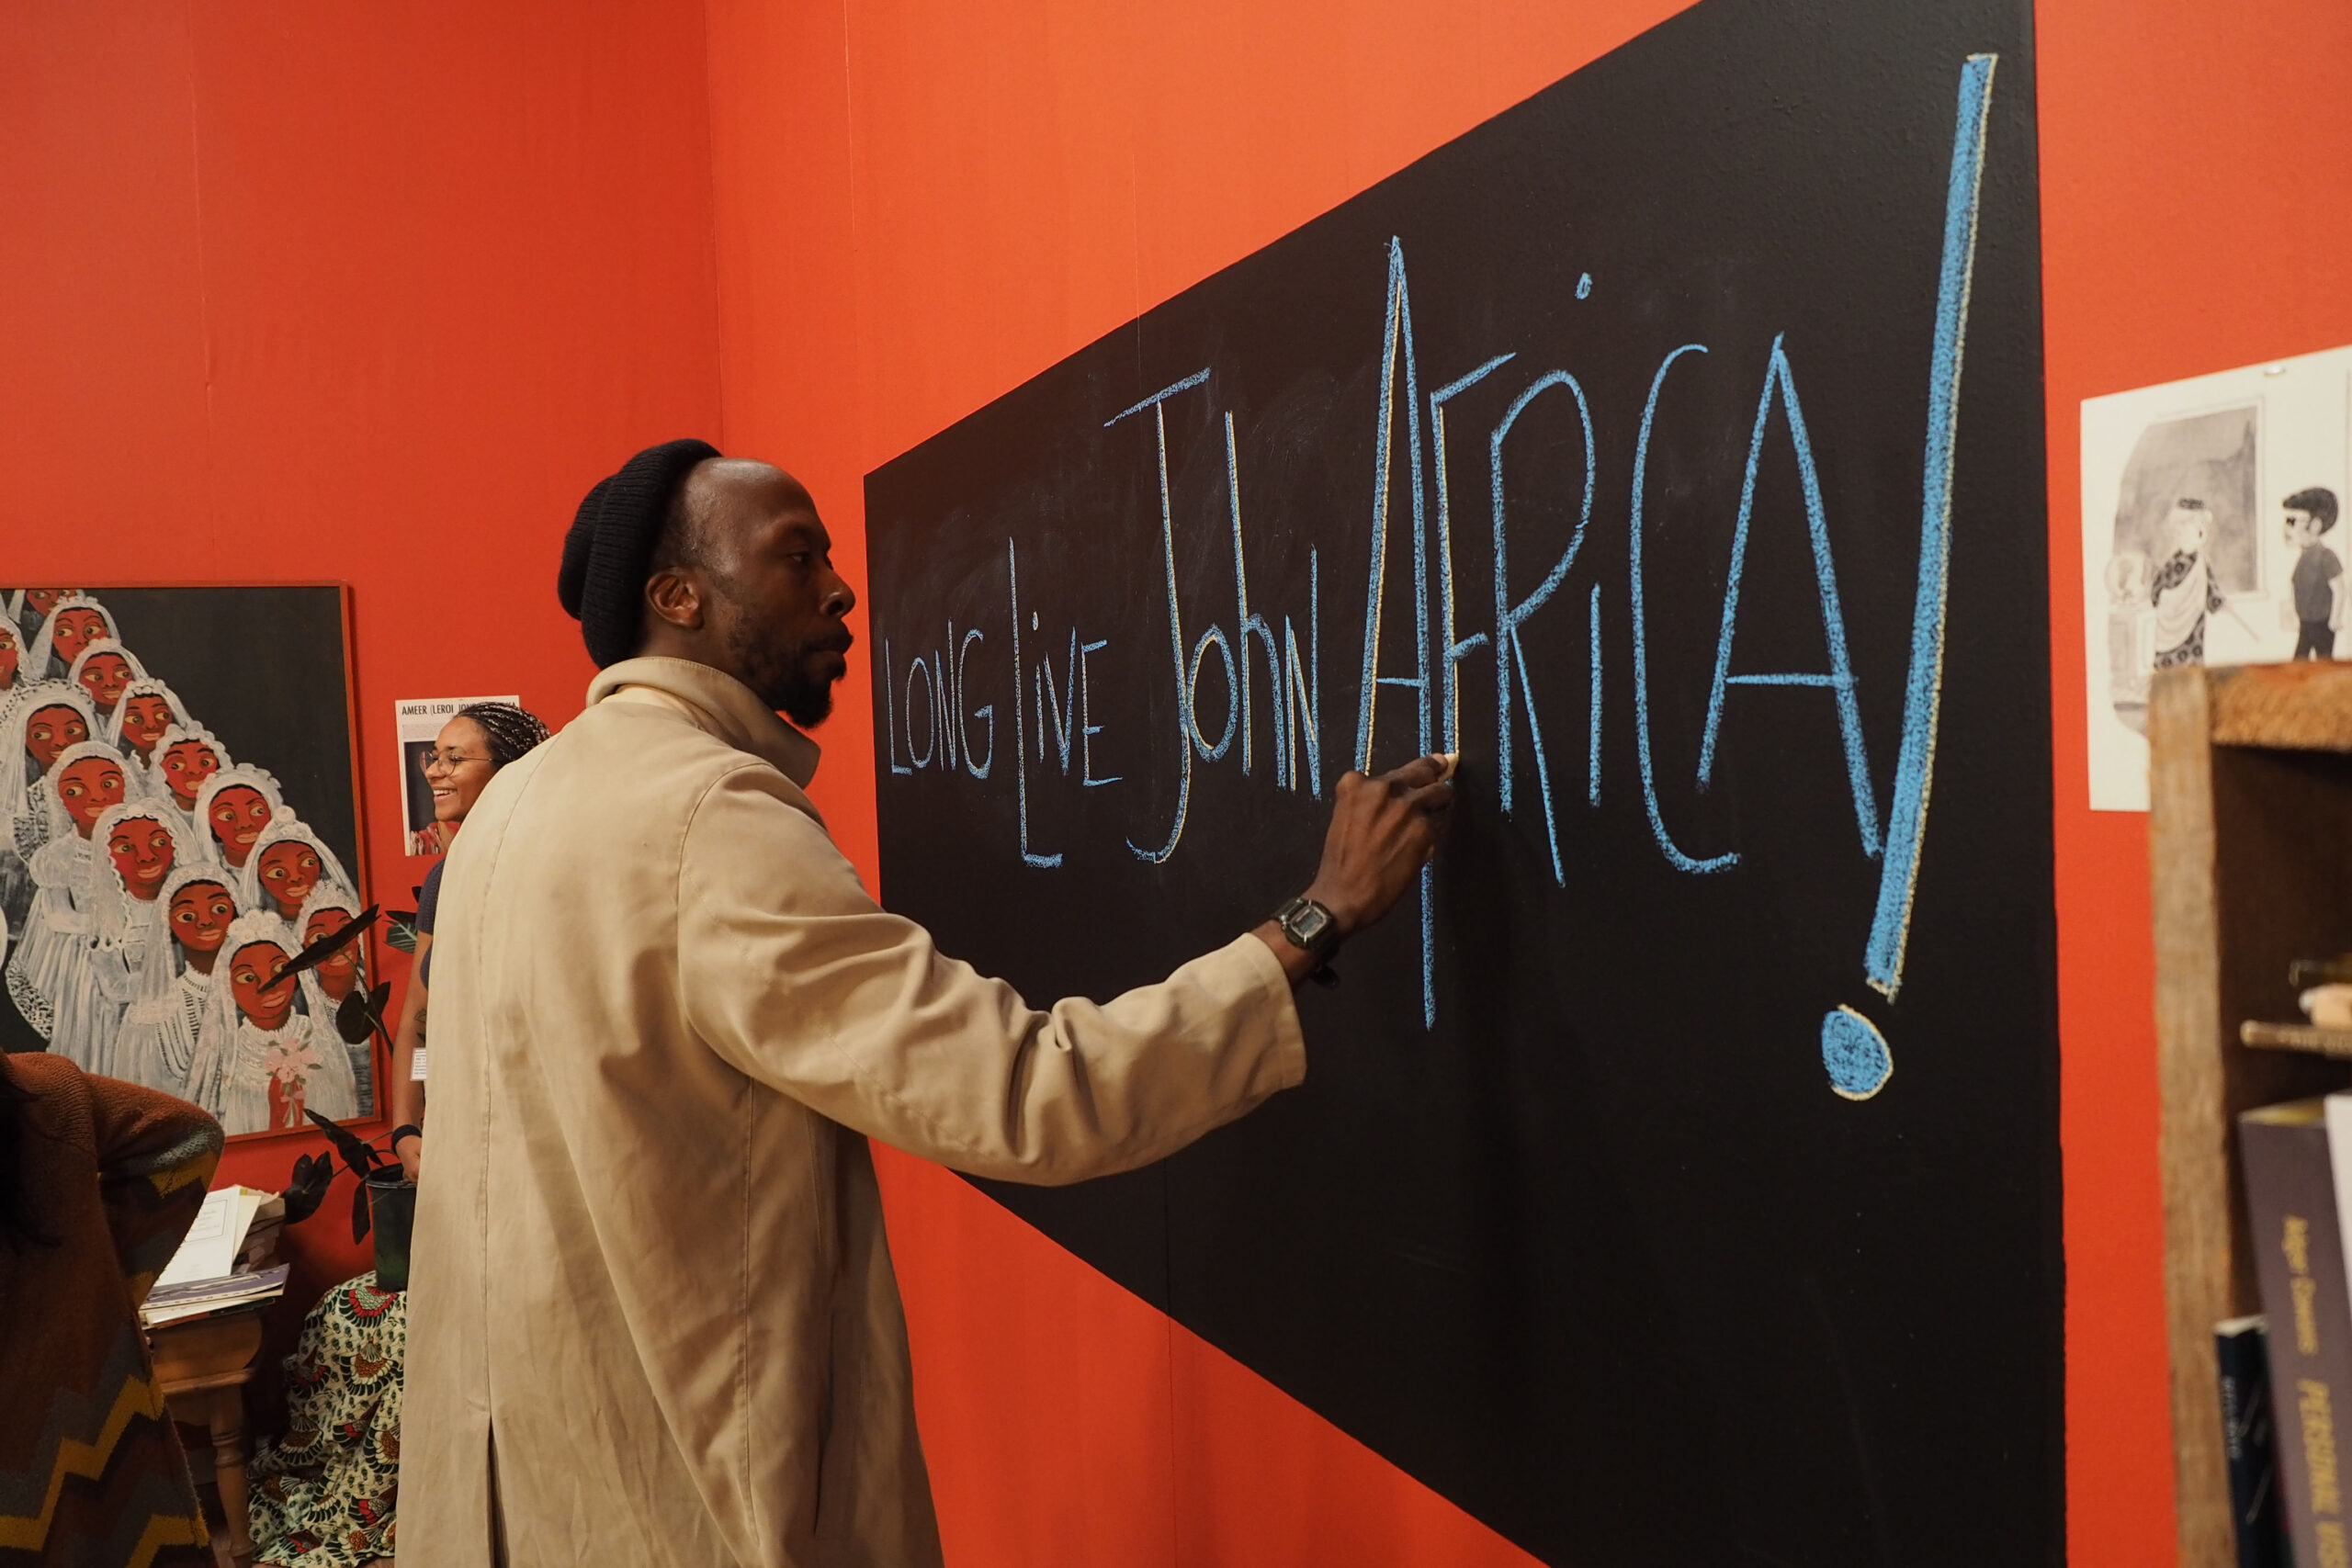 LONG LiVE JohN AFRiCA!
AMEER (LEROI
PERSONAL